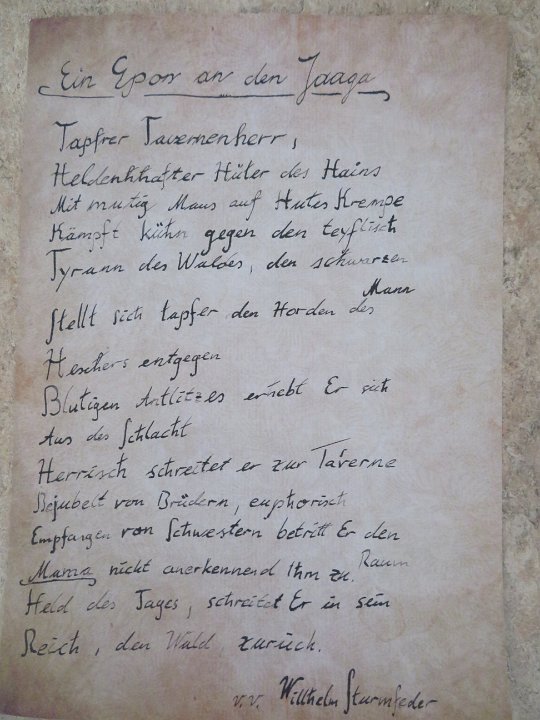 Ein Epos an den Jaaga
Tapfrer Tavernenherr,
Heldenhhafter Hüter des Hains
Mit mutig Maus auf Hutes Krempe
Kämpft kühn gegen den teyflisch
Tyrann des Waldes, den schwarzen Mann
Stellt sich tapfer den Horden des
entgegen
Blutigen Antlitzes erhebt Er sich
Aus des Schlacht
Herrisch schreitet er zur Taverne
Bejubelt von Brüdern, euphorisch
Empfangen von Schwestern betritt Er den Raum
nicht anerkennend Ihm zu.
Held des Tages, schreitet Er in sein
Reich, den Wald zurück.
v.v. Willhelm Sturmfeder